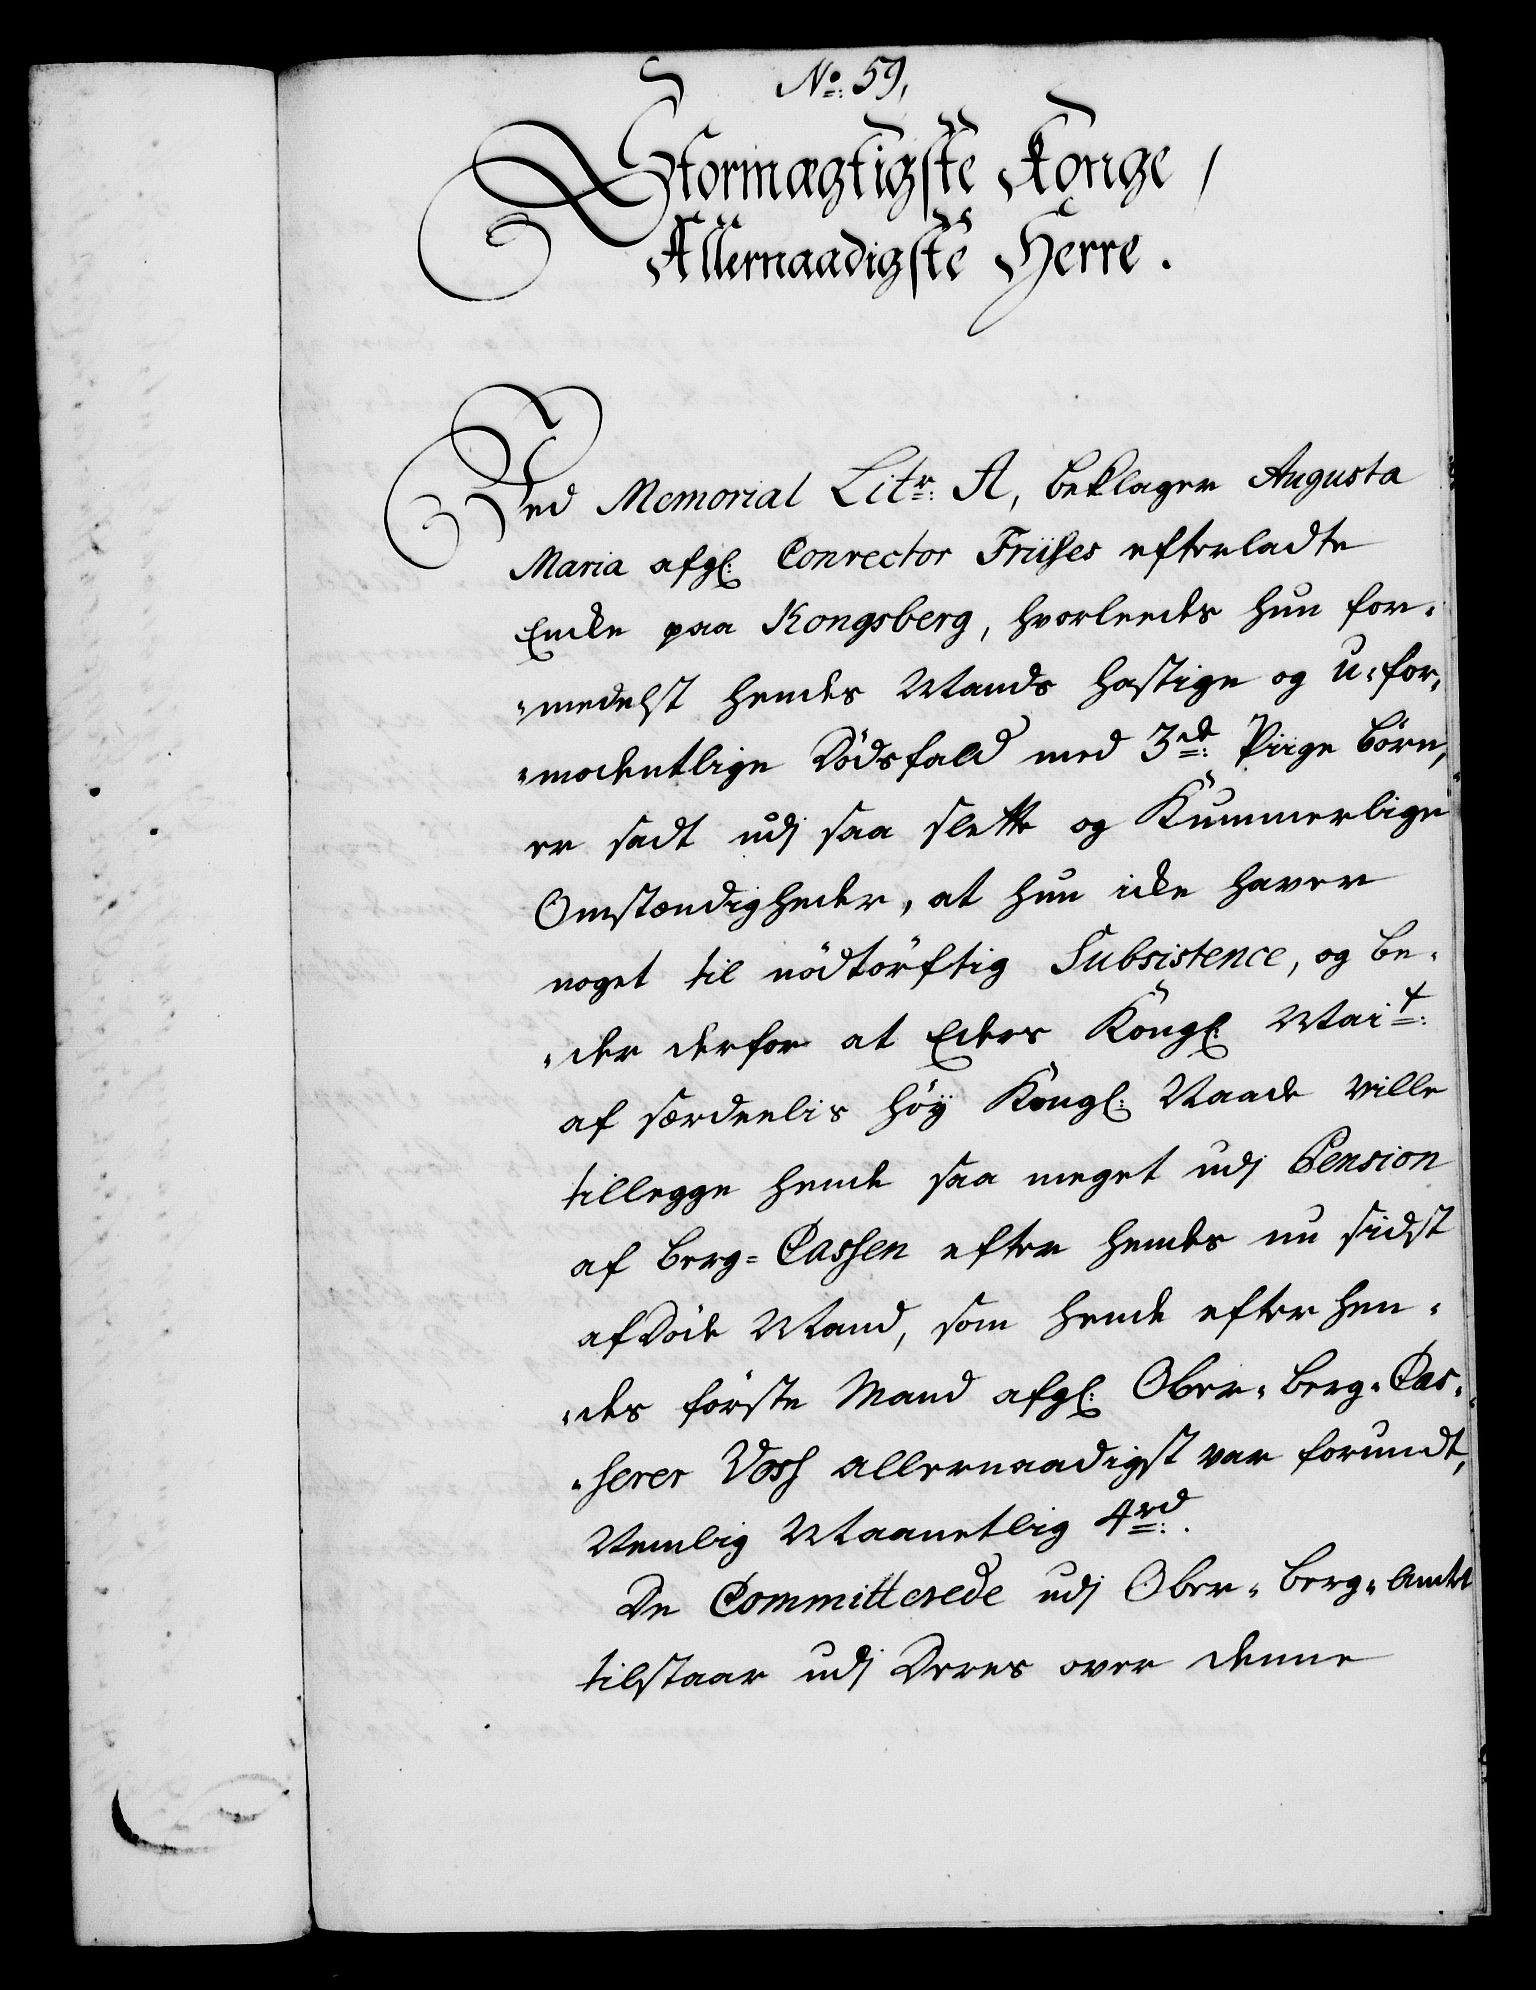 No: 59,
Stormægtigste Konge /
Allernaadigste Herre.
Ved Memorial Litr: A, beklager Augusta
Maria afgl: Conrector Friises efterladte
Enke paa Kongsberg, hvorledes hun for-
-medelst hendes Mands hastige og u-for-
-modentlige Dödsfald med 3de: Piige börn,
er sadt udj saa slette og Kummerlige
Omstændigheder, at hun icke haver
noget til nödtörftig Subsistence, og be-
-der derfor at Eders Kongl: Mait:
af særdeelis höy Kongl: Naade ville
tillegge hende saa meget udj Pension
af berg-Cassen efter hendes nu sidst
afdöde Mand, som hende efter hen-
-des förste Mand afgl: Ober-berg-Cas-
-serer Voss allernaadigst var forundt,
Nemlig Maanetlig 4rd:.
De Committerede udj Ober-berg-Amtet
tilstaar udj Deres over denne